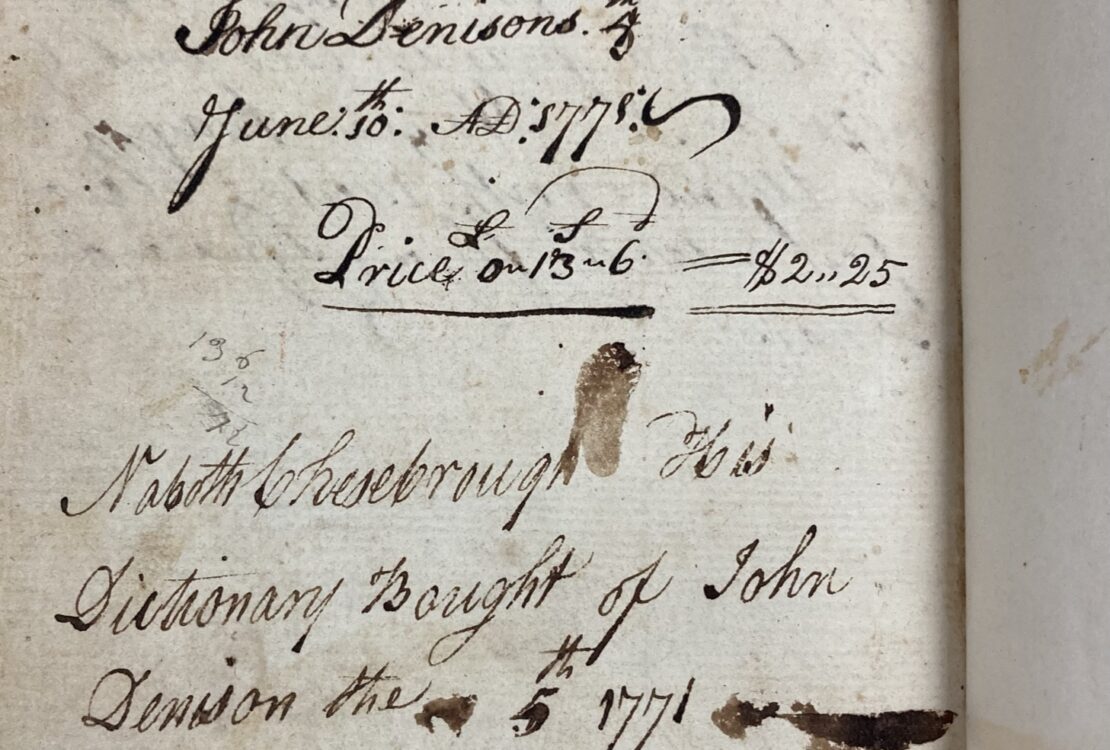 John Denisons. 4
June: 10th: AD: 1771:
£ S D
Price 0 " 13 " 6. = $2,,25
13 6
12
Naboth Chesebrough His
Dictionary Bought of John
Denison the 5th 1771